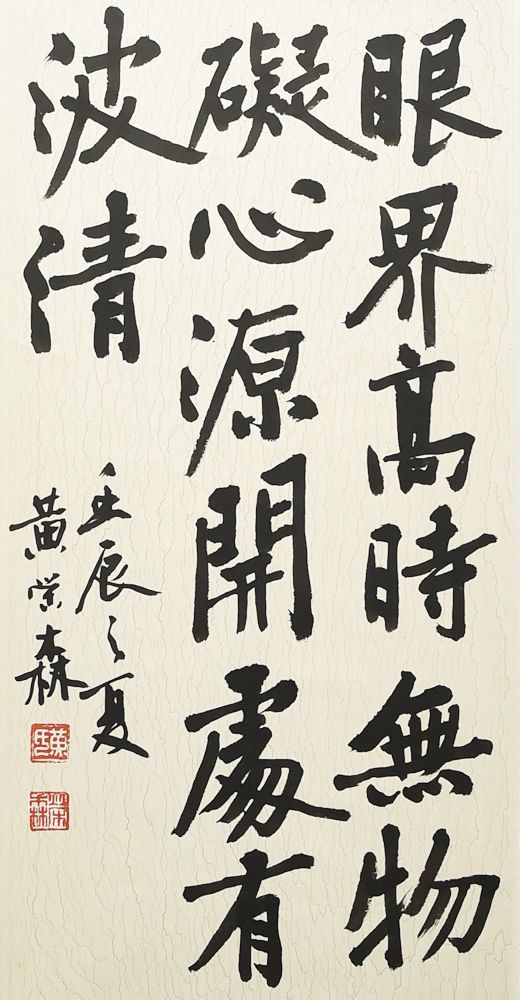 眼界高時無物
礙心源開處有
波清
壬辰之夏
黃崇森
黃氏
崇森